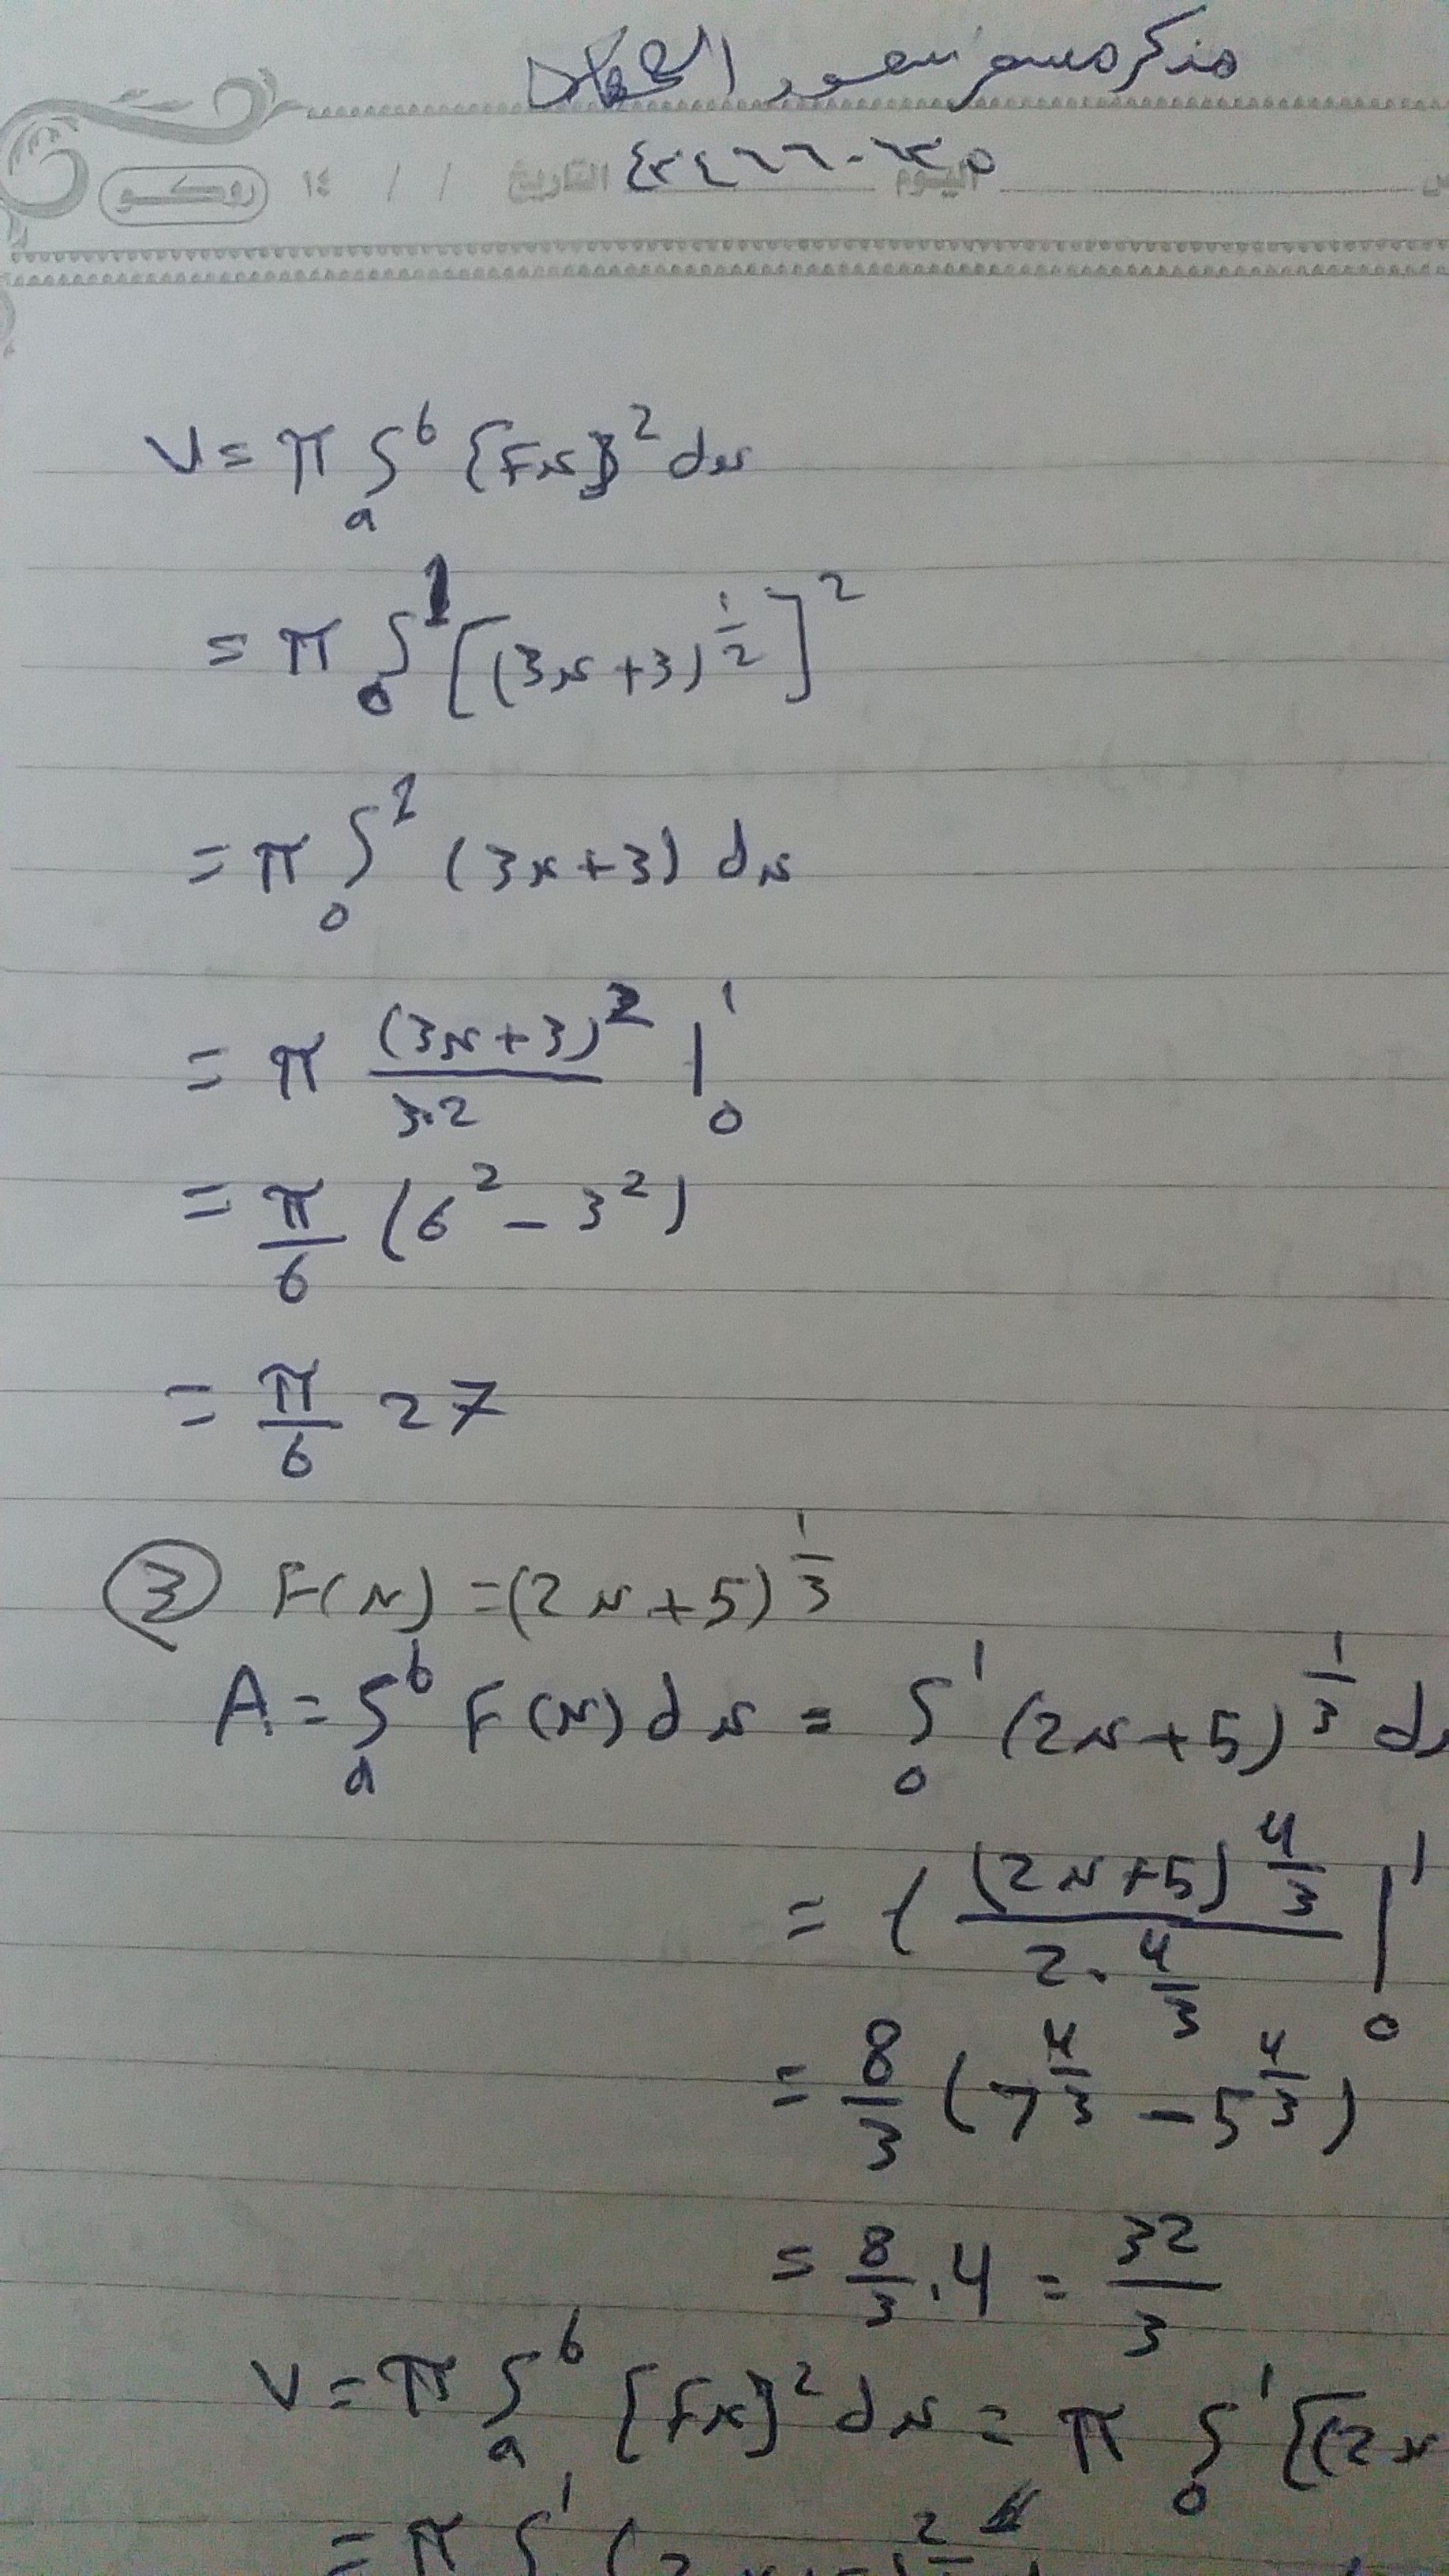 مذكر مسفر سعود
اليوم التاريخ / / ١٤ روكو
V = π ∫ₐᵇ {Fx}² dx
= π ∫₀¹ [(3x+3)^(1/2)]²
= π ∫₀¹ (3x+3) dx
= π (3x+3)²/3.2 |₀¹
= π/6 (6² - 3²)
= π/6 27
③ F(x) = (2x+5)^(1/3)
A = ∫ₐᵇ F(x) dx = ∫₀¹ (2x+5)^(1/3) d
= ( (2x+5)^(4/3) / 2.4/3 |₀¹
= 8/3 (7^(4/3) - 5^(4/3))
= 8/3 . 4 = 32/3
V = π ∫ₐᵇ [Fx]² dx = π ∫₀¹ [(2x
= π ∫¹ (2x